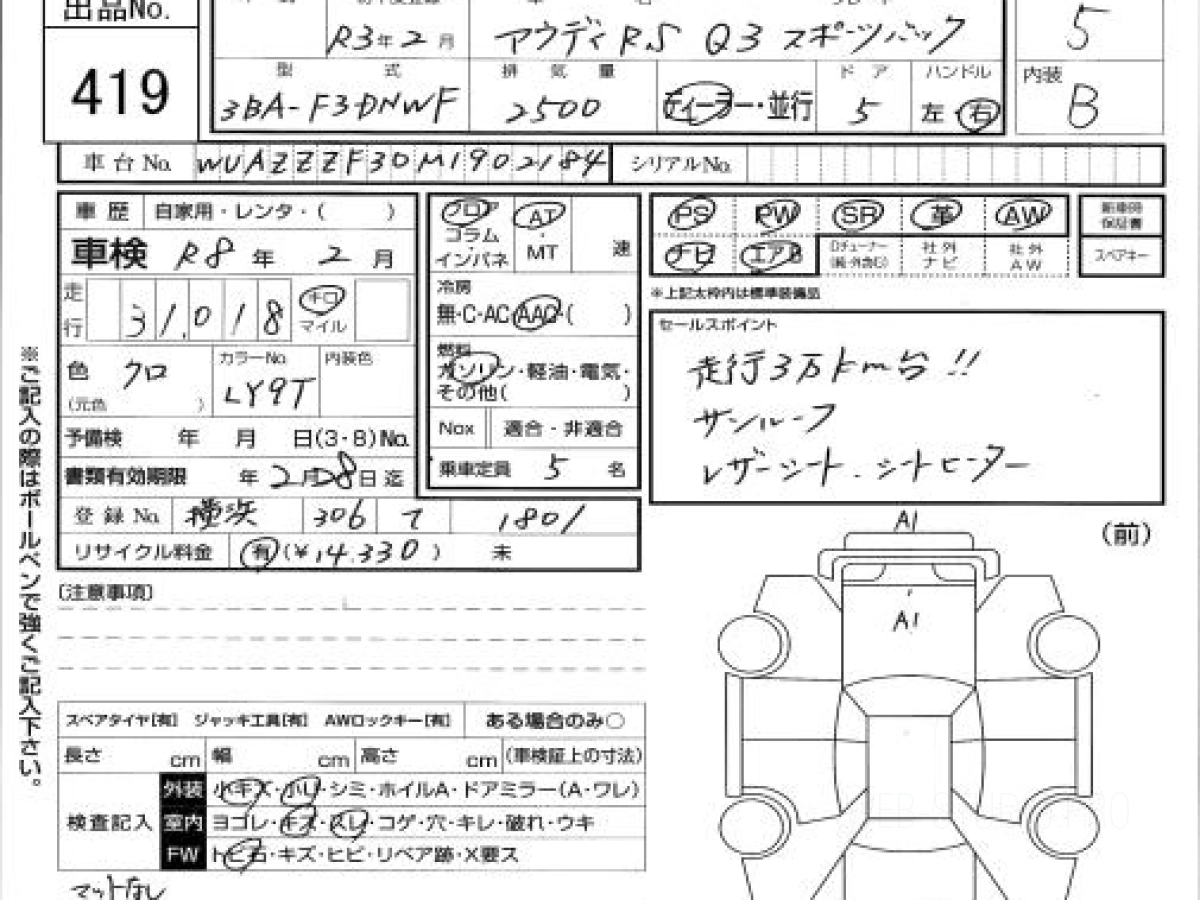 出品No.
419
R3年2月
アウディRS Q3 スポーツバック
5
型式
排気量
ドア
ハンドル
内装
3BA-F3DNWF
2500
ディーラー・並行
5
左 右
B
車台No. WUAZZZF30M1902184
シリアルNo.
車歴 自家用・レンタ・( )
車検 R8年 2月
走行 31,018 キロ マイル
色 クロ (元色 )
カラーNo. LY9T
内装色
予備検 年 月 日(3・8)No.
書類有効期限 年2月28日迄
登録No. 横浜 306 ワ 1801
リサイクル料金 有(¥14,330) 未
フロア コラム・インパネ
AT・MT 速
冷房
無・C・AC・AAC・( )
燃料
ガソリン・軽油・電気・
その他( )
Nox 適合・非適合
乗車定員 5 名
PS PW SR 革 AW
新車時保証書
ナビ エアB Dチューナー(純・外含む) 社外ナビ 社外AW
スペアキー
※上記太枠内は標準装備品
セールスポイント
走行3万km台!!
サンルーフ
レザーシート.シートヒーター
※ご記入の際はボールペンで強くご記入下さい。
〔注意事項〕
A1
(前)
A1
スペアタイヤ[有] ジャッキ工具[有] AWロックキー[有] ある場合のみ○
長さ cm 幅 cm 高さ cm (車検証上の寸法)
検査記入
外装 小キズ・小凹・シミ・ホイルA・ドアミラー(A・ワレ)
室内 ヨゴレ・キズ・スレ・コゲ・穴・キレ・破れ・ウキ
FW トビ石・キズ・ヒビ・リペア跡・X要ス
マットなし